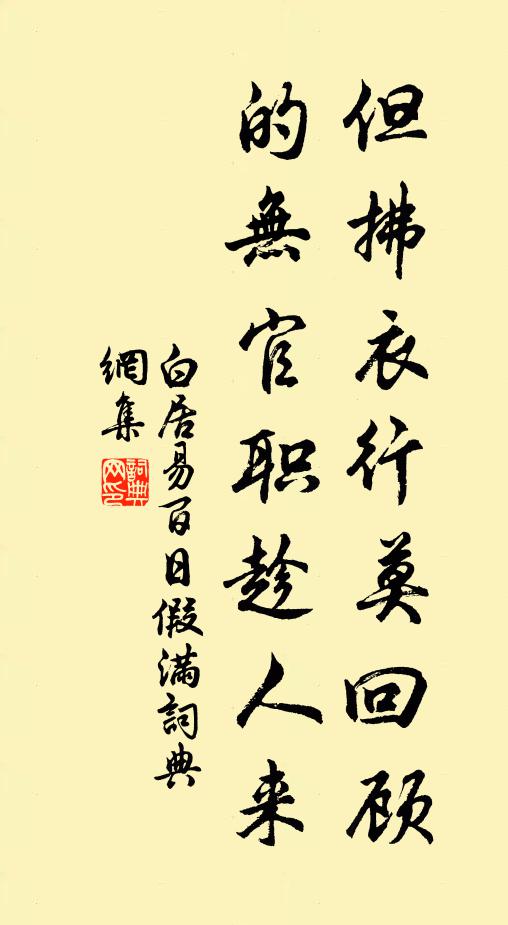 但拂衣行莫回顾
的無官职趁人来
白居易百日假满詞典
網集
詞典網印